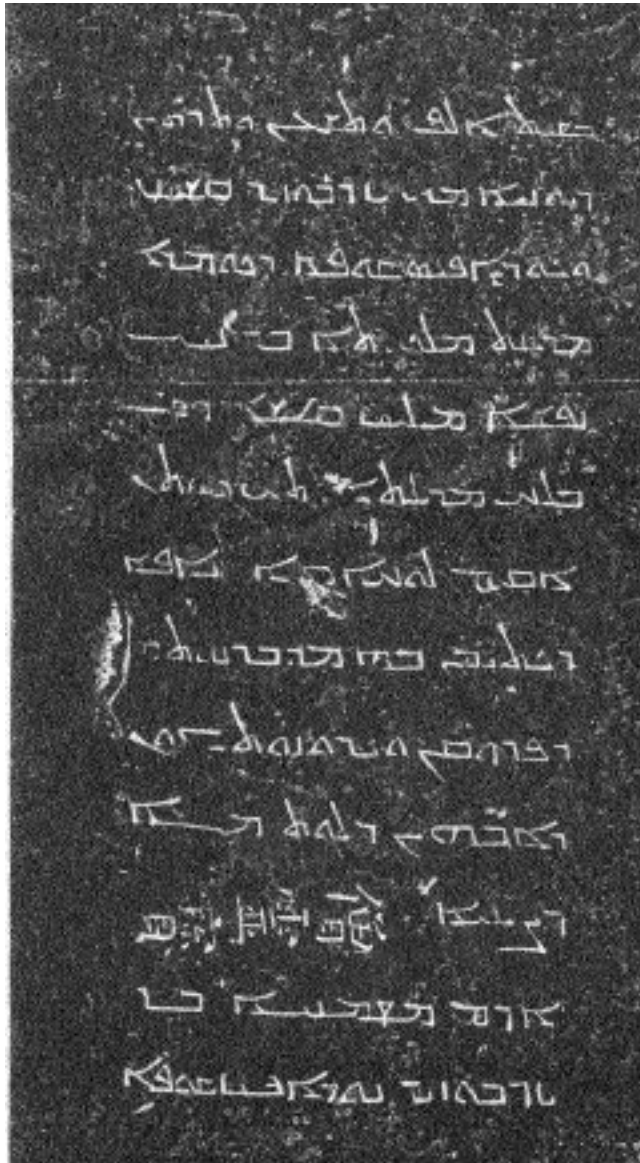 ܒܫܢܬ ܐܠܦ ܘܬܫܥܝܢ ܘܬܪܬܝܢ
ܕܝܘܢܝܐ ܡܪܝ ܝܙܕܒܘܙܝܕ ܩܫܝܫܐ
ܘܟܘܪܐܦܝܣܩܘܦܐ ܕܟܘܡܕܐܢ
ܡܕܝܢܬ ܡܠܟܘܬܐ ܒܪ ܢܝܚ
ܢܦܫܐ ܡܝܠܝܣ ܩܫܝܫܐ ܕܡܢ
ܒܠܚ ܡܕܝܢܬܐ ܕܬܚܘܪܣܬܢ
ܐܩܝܡ ܠܘܚܐ ܗܢܐ ܕܟܐܦܐ
ܕܟܬܝܒܢ ܒܗ ܡܕܒܪܢܘܬܗ
ܕܦܪܘܩܢ ܘܟܪܘܙܘܬܗܘܢ
ܕܐܒܗܝܢ ܕܠܘܬ ܡܠܟܐ
ܕܨܝܢܝܐ 僧靈寶
ܐܕܡ ܡܫܡܫܢܐ ܒܪ
ܝܙܕܒܘܙܝܕ ܟܘܪܐܦܝܣܩܘܦܐ